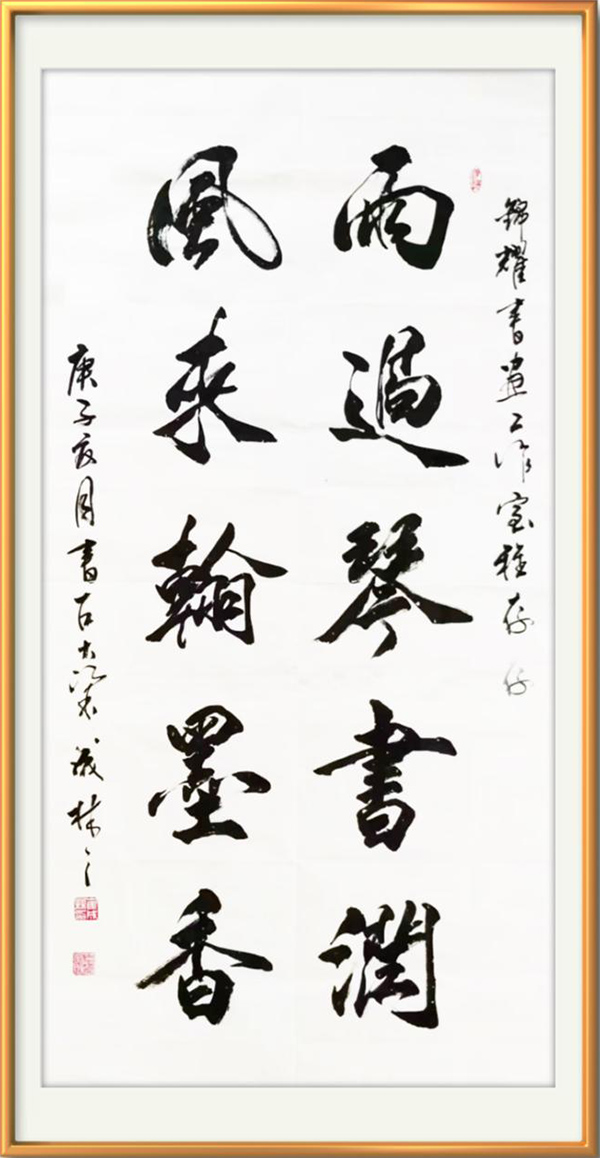 錦耀書畫工作室雅存
雨過琴書潤
風來翰墨香
庚子夏月書古